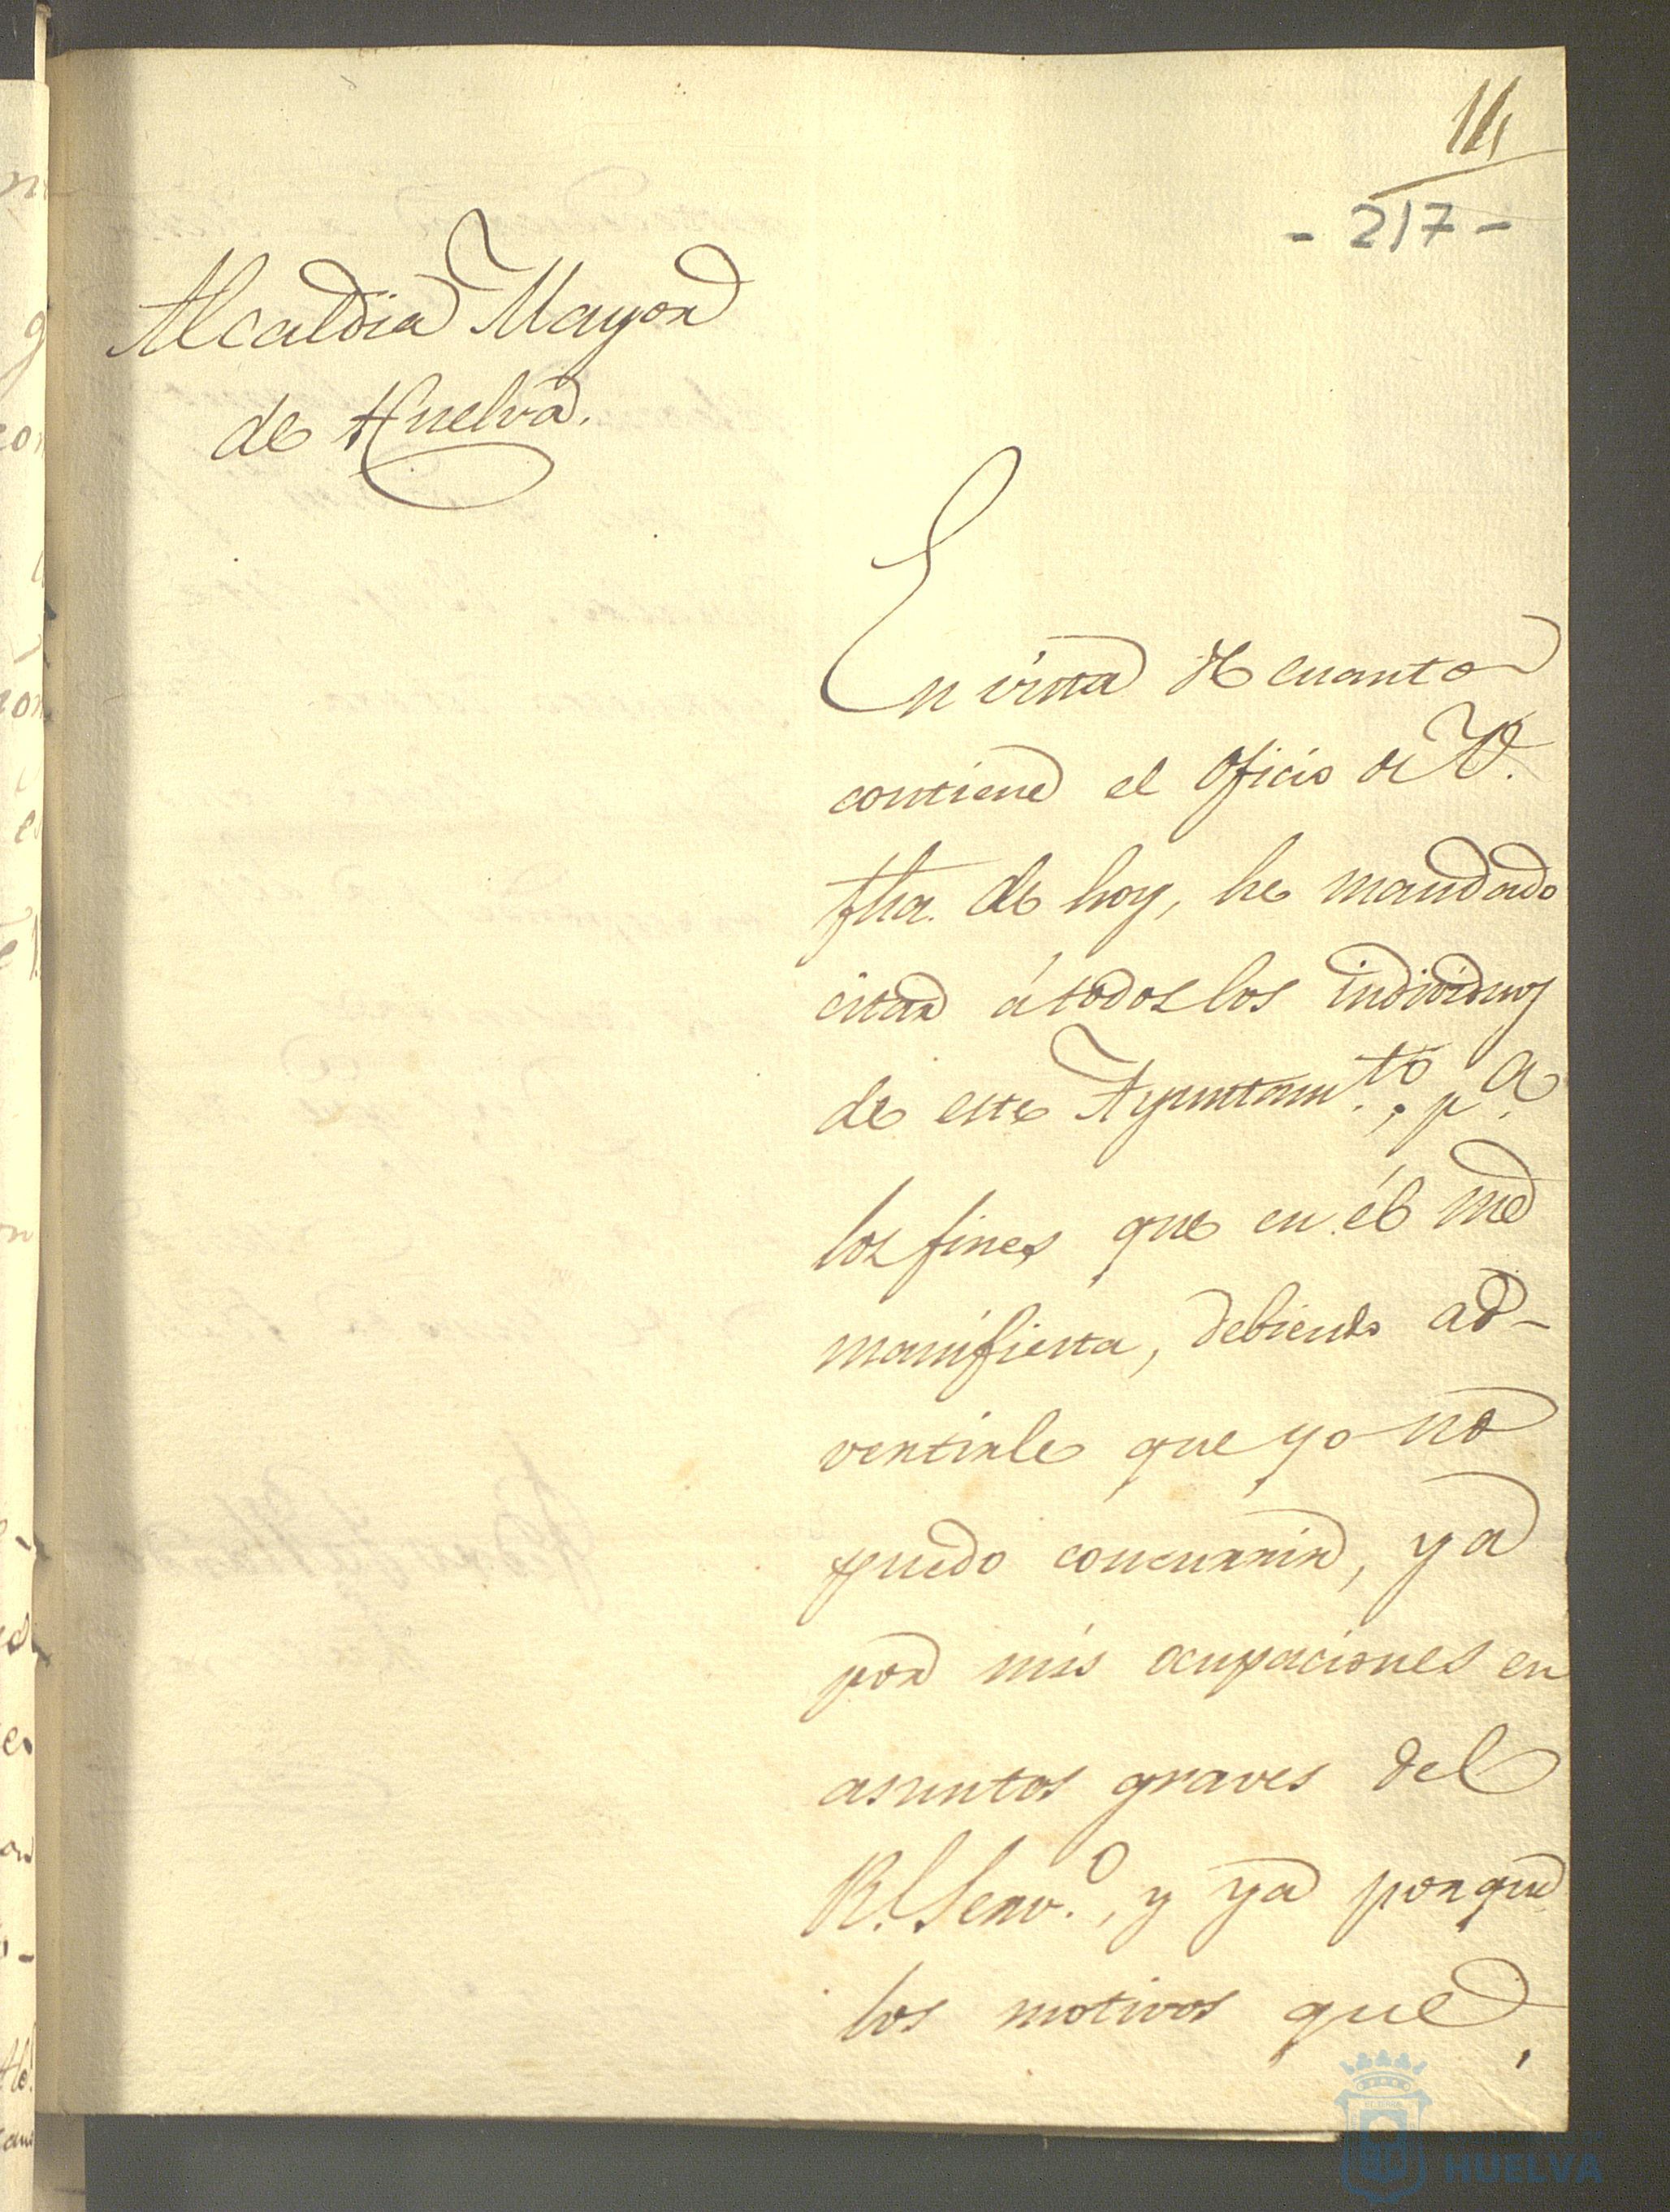 - 217 -
Alcaldia Mayor
de Huelva.
En vista de cuanto
contiene el oficio de V.
fha. de hoy, he mandado
citar á todos los individuos
de este Ayuntam.to, p.a
los fines que en él me
manifiesta, debiendo ad-
vertirle que yo no
puedo concurrir, ya
por mis ocupaciones en
asuntos graves del
R.l Serv.o, y ya porque
los motivos que
HUELVA